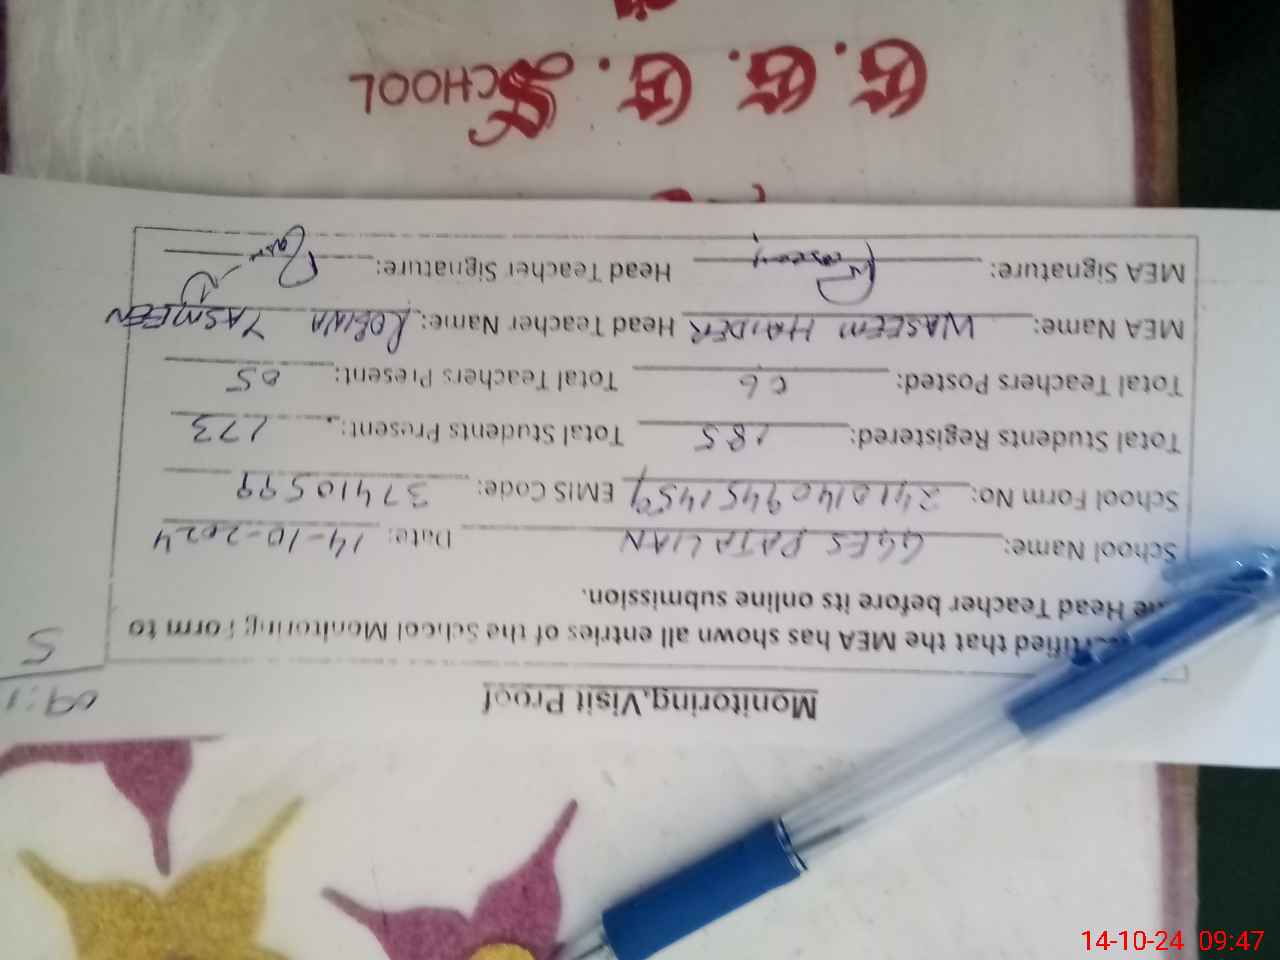 Monitoring Visit Proof
09:15
Certified that the MEA has shown all entries of the School Monitoring Form to
the Head Teacher before its online submission.
School Name: GGES PATALIAN Date: 14-10-2024
School Form No: 24101409451459 EMIS Code: 37410599
Total Students Registered: 185 Total Students Present: 173
Total Teachers Posted: 06 Total Teachers Present: 05
MEA Name: WASEEM HAIDER Head Teacher Name: ROBINA YASMEEN
MEA Signature: Head Teacher Signature:
G. G. E. SCHOOL
14-10-24 09:47